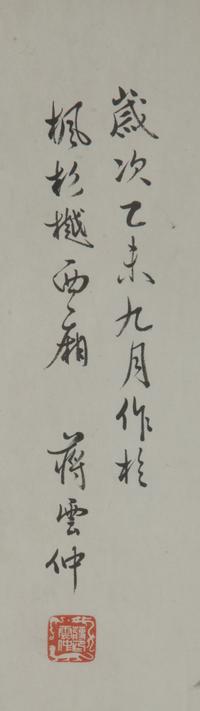 歲次乙未九月作於
楓杉樾西廂 蔣雲仲